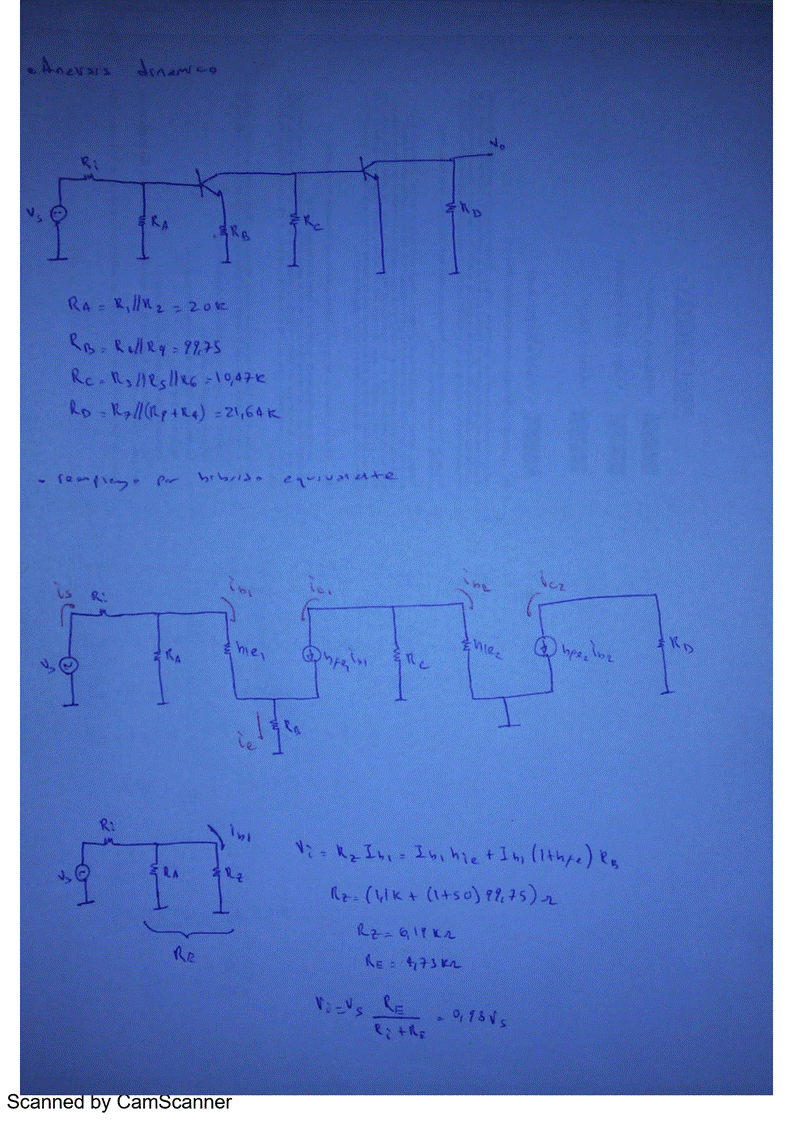 • Analisis dinamico
Vo
Ri
Vs
RA
RB
RC
RD
RA = R1//R2 = 20K
RB = R4//R9 = 99,75
RC = R3//R5//R6 = 10,47K
RD = R7//(RP+R4) = 21,64K
- remplazo por hibrido equivalente
is
Ri
ib1
ic1
ib2
ic2
Vs
RA
hie1
hfe1 ib1
RC
hie2
hfe2 ib2
RD
ie
RB
Ri
ib1
Vs
RA
RZ
RE
Vi = RZ Ib1 = Ib1 hie + Ib1 (1+hfe) RB
RZ = (1,1K + (1+50) 99,75) Ω
RZ = 6,19 KΩ
RE = 4,73 KΩ
Vi = Vs RE / Ri + RE = 0,98 Vs
Scanned by CamScanner